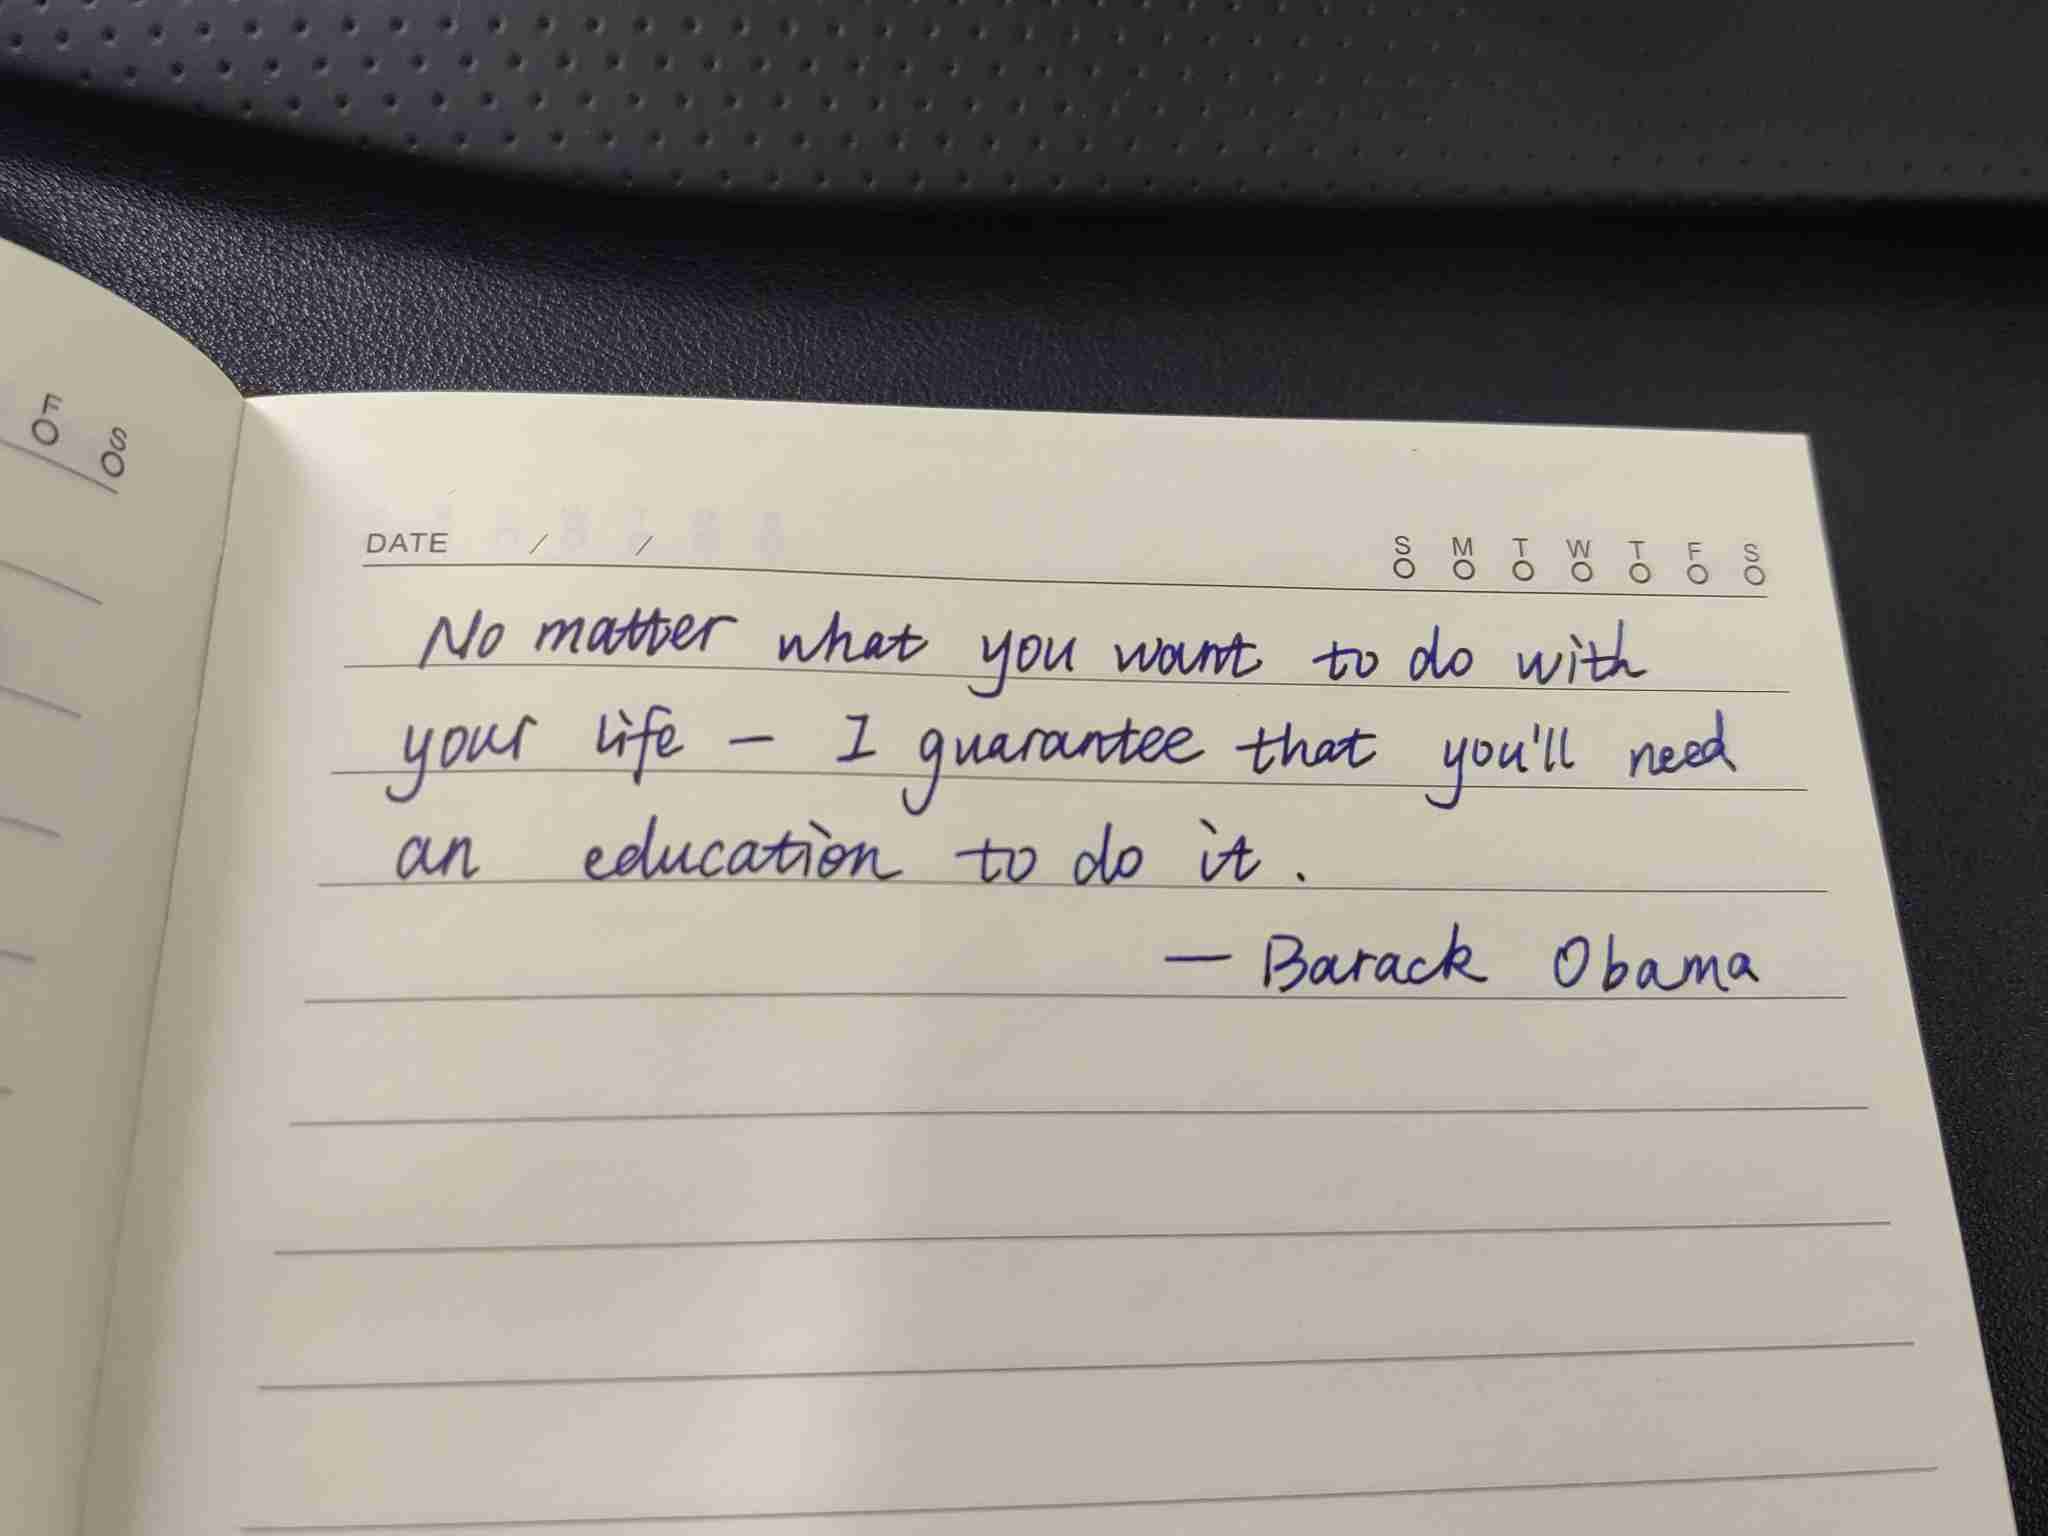 F S
DATE / / S M T W T F S
No matter what you want to do with
your life - I guarantee that you'll need
an education to do it.
— Barack Obama